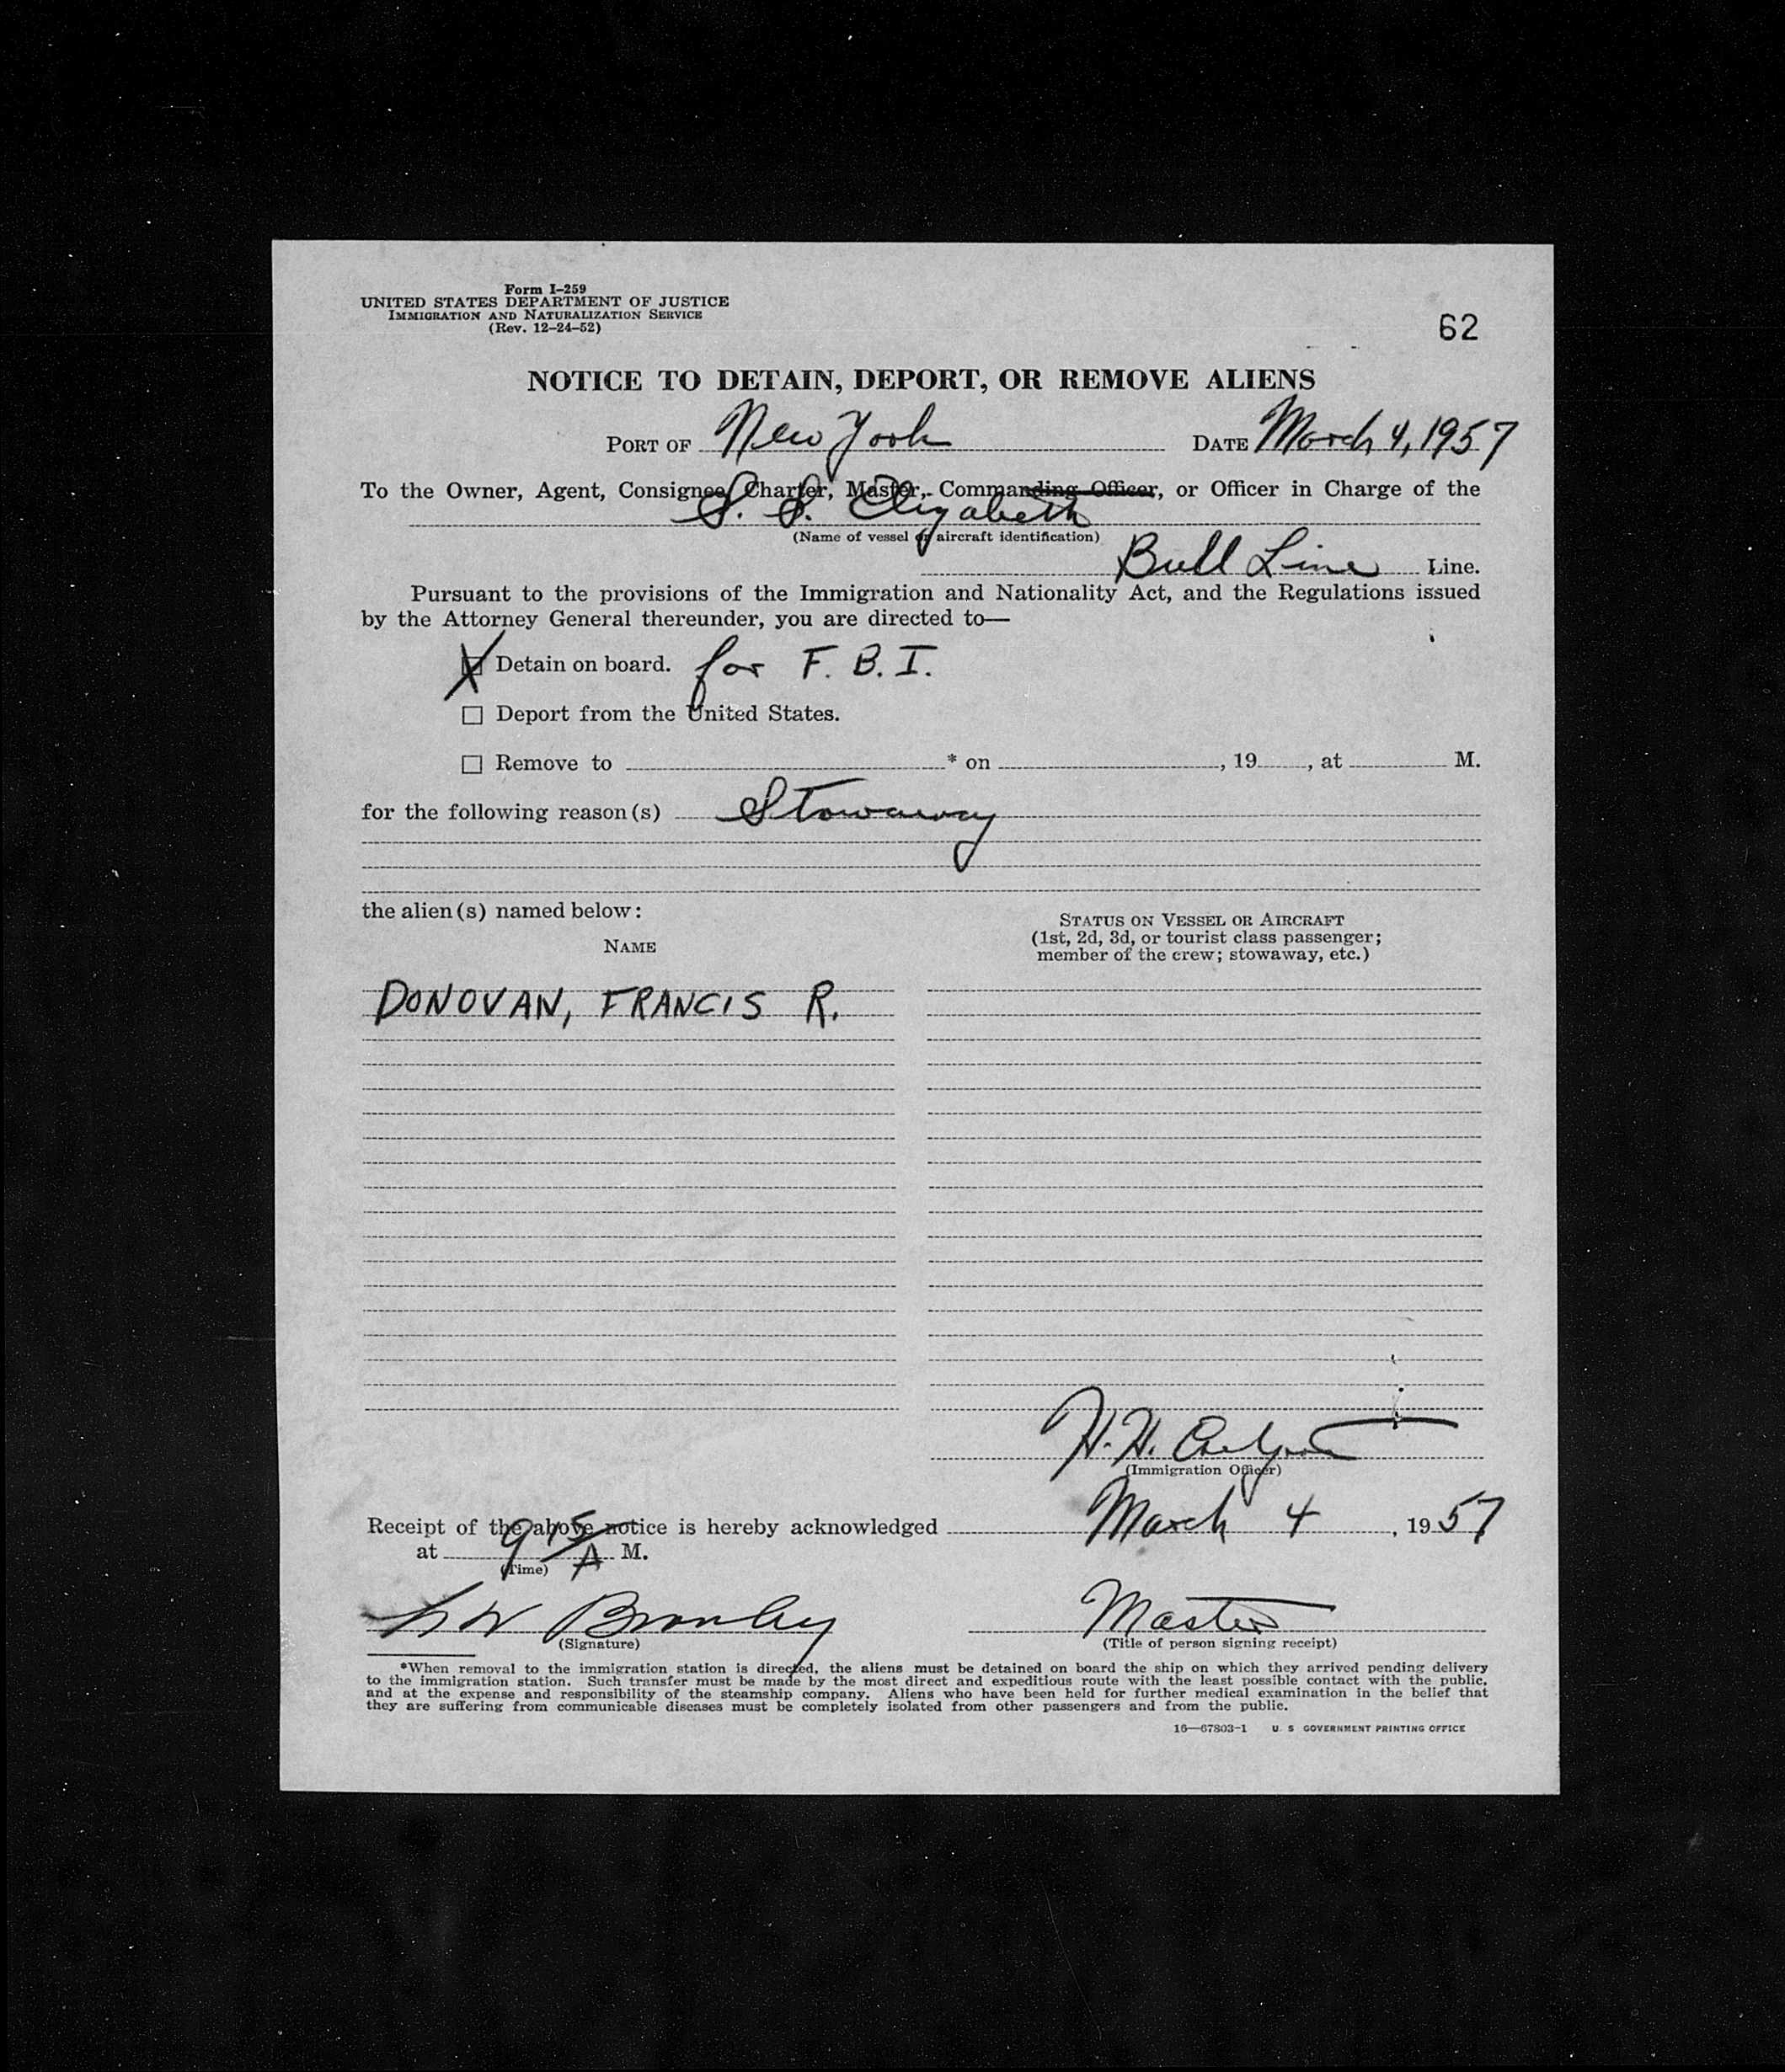 Form I-259
UNITED STATES DEPARTMENT OF JUSTICE
IMMIGRATION AND NATURALIZATION SERVICE
(Rev. 12-24-52)
62
NOTICE TO DETAIN, DEPORT, OR REMOVE ALIENS
PORT OF New York DATE March 4, 1957
To the Owner, Agent, Consignee, Charter, Master, Commanding Officer, or Officer in Charge of the
S. S. Elizabeth
(Name of vessel or aircraft identification)
Bull Line Line.
Pursuant to the provisions of the Immigration and Nationality Act, and the Regulations issued
by the Attorney General thereunder, you are directed to—
X Detain on board. for F. B. I.
☐ Deport from the United States.
☐ Remove to * on , 19 , at M.
for the following reason(s) Stowaway
the alien(s) named below:
NAME
STATUS ON VESSEL OR AIRCRAFT
(1st, 2d, 3d, or tourist class passenger;
member of the crew; stowaway, etc.)
DONOVAN, FRANCIS R.
H. H.
(Immigration Officer)
Receipt of the above notice is hereby acknowledged March 4, 1957
at 9 15 A M.
(Time)
W Master
(Signature) (Title of person signing receipt)
*When removal to the immigration station is directed, the aliens must be detained on board the ship on which they arrived pending delivery
to the immigration station. Such transfer must be made by the most direct and expeditious route with the least possible contact with the public,
and at the expense and responsibility of the steamship company. Aliens who have been held for further medical examination in the belief that
they are suffering from communicable diseases must be completely isolated from other passengers and from the public.
16—67803-1 U. S. GOVERNMENT PRINTING OFFICE